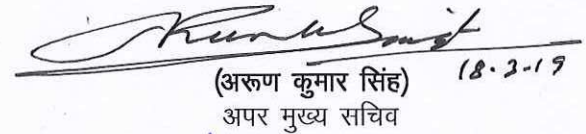 (अरूण कुमार सिंह)
18.3.19
अपर मुख्य सचिव